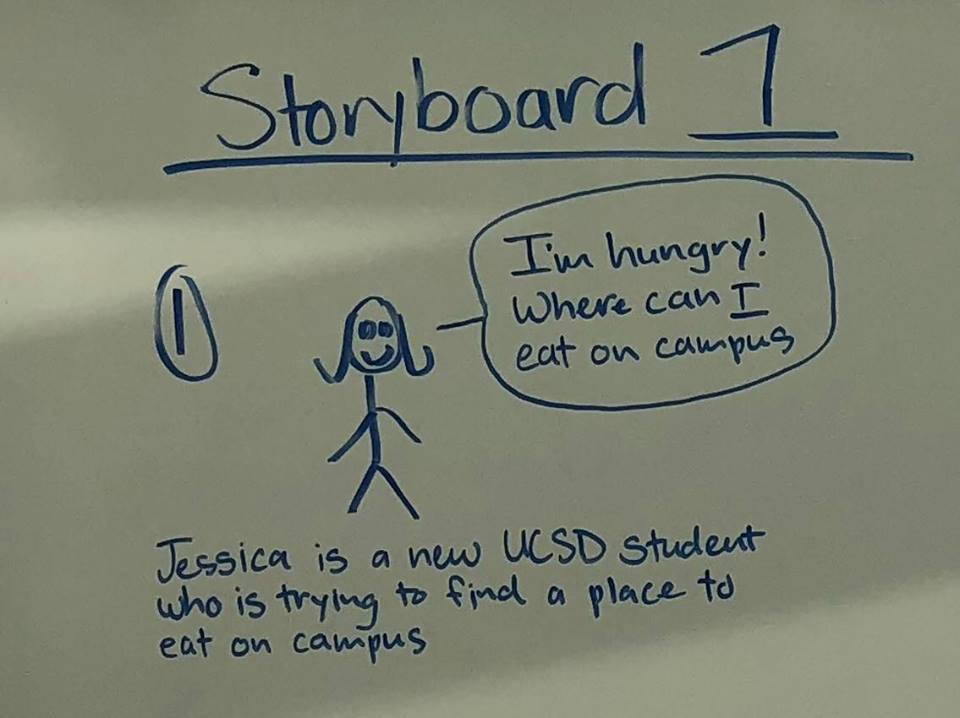 Storyboard 1
1
I'm hungry!
Where can I
eat on campus
Jessica is a new UCSD student
who is trying to find a place to
eat on campus